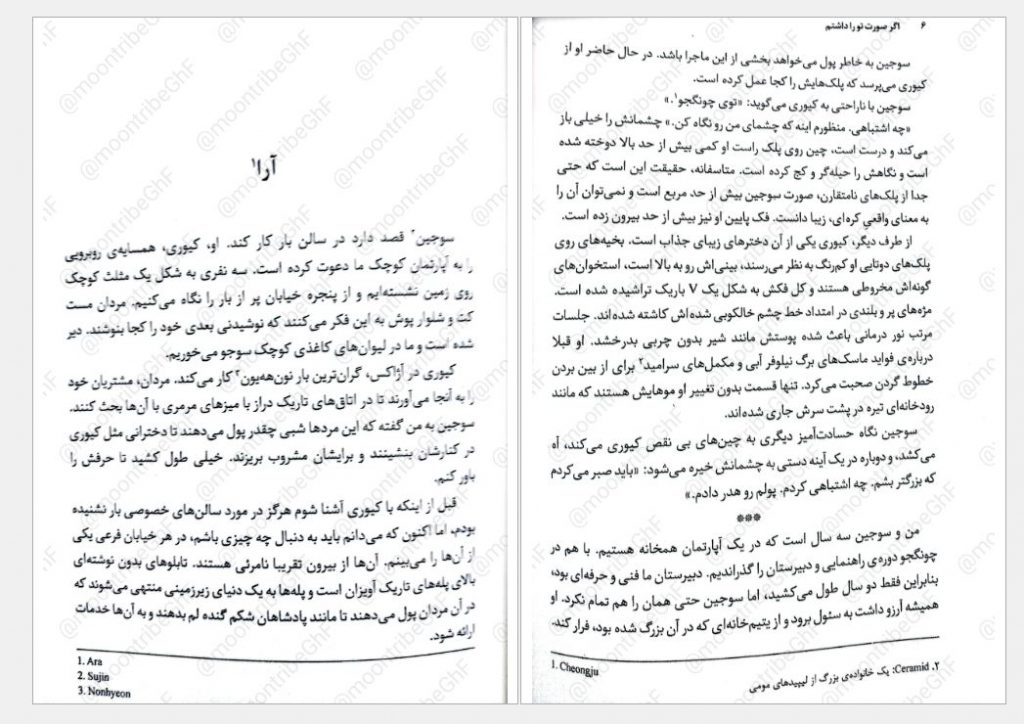 آرا¹
سوجین² قصد دارد در سالن بار کار کند. او، کیوری، همسایه‌ی روبرویی
را به آپارتمان کوچک ما دعوت کرده است. سه نفری به شکل یک مثلث کوچک
روی زمین نشسته‌ایم و از پنجره خیابان پر از بار را نگاه می‌کنیم. مردان مست
کت و شلوار پوش به این فکر می‌کنند که نوشیدنی بعدی خود را کجا بنوشند. دیر
شده است و ما در لیوان‌های کاغذی کوچک سوجو می‌خوریم.
کیوری در آژاکس، گران‌ترین بار نون‌هه‌یون³ کار می‌کند. مردان، مشتریان خود
را به آنجا می‌آورند تا در اتاق‌های تاریک دراز با میزهای مرمری با آن‌ها بحث کنند.
سوجین به من گفته که این مردها شبی چقدر پول می‌دهند تا دخترانی مثل کیوری
در کنارشان بنشینند و برایشان مشروب بریزند. خیلی طول کشید تا حرفش را
باور کنم.
قبل از اینکه با کیوری آشنا شوم هرگز در مورد سالن‌های خصوصی بار نشنیده
بودم. اما اکنون که می‌دانم باید به دنبال چه چیزی باشم، در هر خیابان فرعی یکی
از آن‌ها را می‌بینم. آن‌ها از بیرون تقریبا نامرئی هستند. تابلوهای بدون نوشته‌ای
بالای پله‌های تاریک آویزان است و پله‌ها به یک دنیای زیرزمینی منتهی می‌شوند که
در آن مردان پول می‌دهند تا مانند پادشاهان شکم گنده لم بدهند و به آن‌ها خدمات
ارائه شود.
1. Ara
2. Sujin
3. Nonhyeon
۶ اگر صورت تو را داشتم
سوجین به خاطر پول می‌خواهد بخشی از این ماجرا باشد. در حال حاضر او از
کیوری می‌پرسد که پلک‌هایش را کجا عمل کرده است.
سوجین با ناراحتی به کیوری می‌گوید: «توی چونگجو¹.»
«چه اشتباهی. منظورم اینه که چشمای من رو نگاه کن.» چشمانش را خیلی باز
می‌کند و درست است، چین روی پلک راست او کمی بیش از حد بالا دوخته شده
است و نگاهش را حیله‌گر و کج کرده است. متاسفانه، حقیقت این است که حتی
جدا از پلک‌های نامتقارن، صورت سوجین بیش از حد مربع است و نمی‌توان آن را
به معنای واقعی کره‌ای، زیبا دانست. فک پایین او نیز بیش از حد بیرون زده است.
از طرف دیگر، کیوری یکی از آن دخترهای زیبای جذاب است. بخیه‌های روی
پلک‌های دوتایی او کم‌رنگ به نظر می‌رسند، بینی‌اش رو به بالا است، استخوان‌های
گونه‌اش مخروطی هستند و کل فکش به شکل یک V باریک تراشیده شده است.
مژه‌های پر و بلندی در امتداد خط چشم خالکوبی شده‌اش کاشته شده‌اند. جلسات
مرتب نور درمانی باعث شده پوستش مانند شیر بدون چربی بدرخشد. او قبلا
درباره‌ی فواید ماسک‌های برگ نیلوفر آبی و مکمل‌های سرامید² برای از بین بردن
خطوط گردن صحبت می‌کرد. تنها قسمت بدون تغییر او موهایش هستند که مانند
رودخانه‌ای تیره در پشت سرش جاری شده‌اند.
سوجین نگاه حسادت‌آمیز دیگری به چین‌های بی نقص کیوری می‌کند، آه
می‌کشد، و دوباره در یک آینه دستی به چشمانش خیره می‌شود: «باید صبر می‌کردم
که بزرگتر بشم. چه اشتباهی کردم. پولم رو هدر دادم.»
***
من و سوجین سه سال است که در یک آپارتمان همخانه هستیم. با هم در
چونگجو دوره‌ی راهنمایی و دبیرستان را گذراندیم. دبیرستان ما فنی و حرفه‌ای بود،
بنابراین فقط دو سال طول می‌کشید، اما سوجین حتی همان را هم تمام نکرد. او
همیشه آرزو داشت به سئول برود و از یتیم‌خانه‌ای که در آن بزرگ شده بود، فرار کند.
1. Cheongju
۲. Ceramid: یک خانواده‌ی بزرگ از لیپیدهای مومی
@moontribeGhF